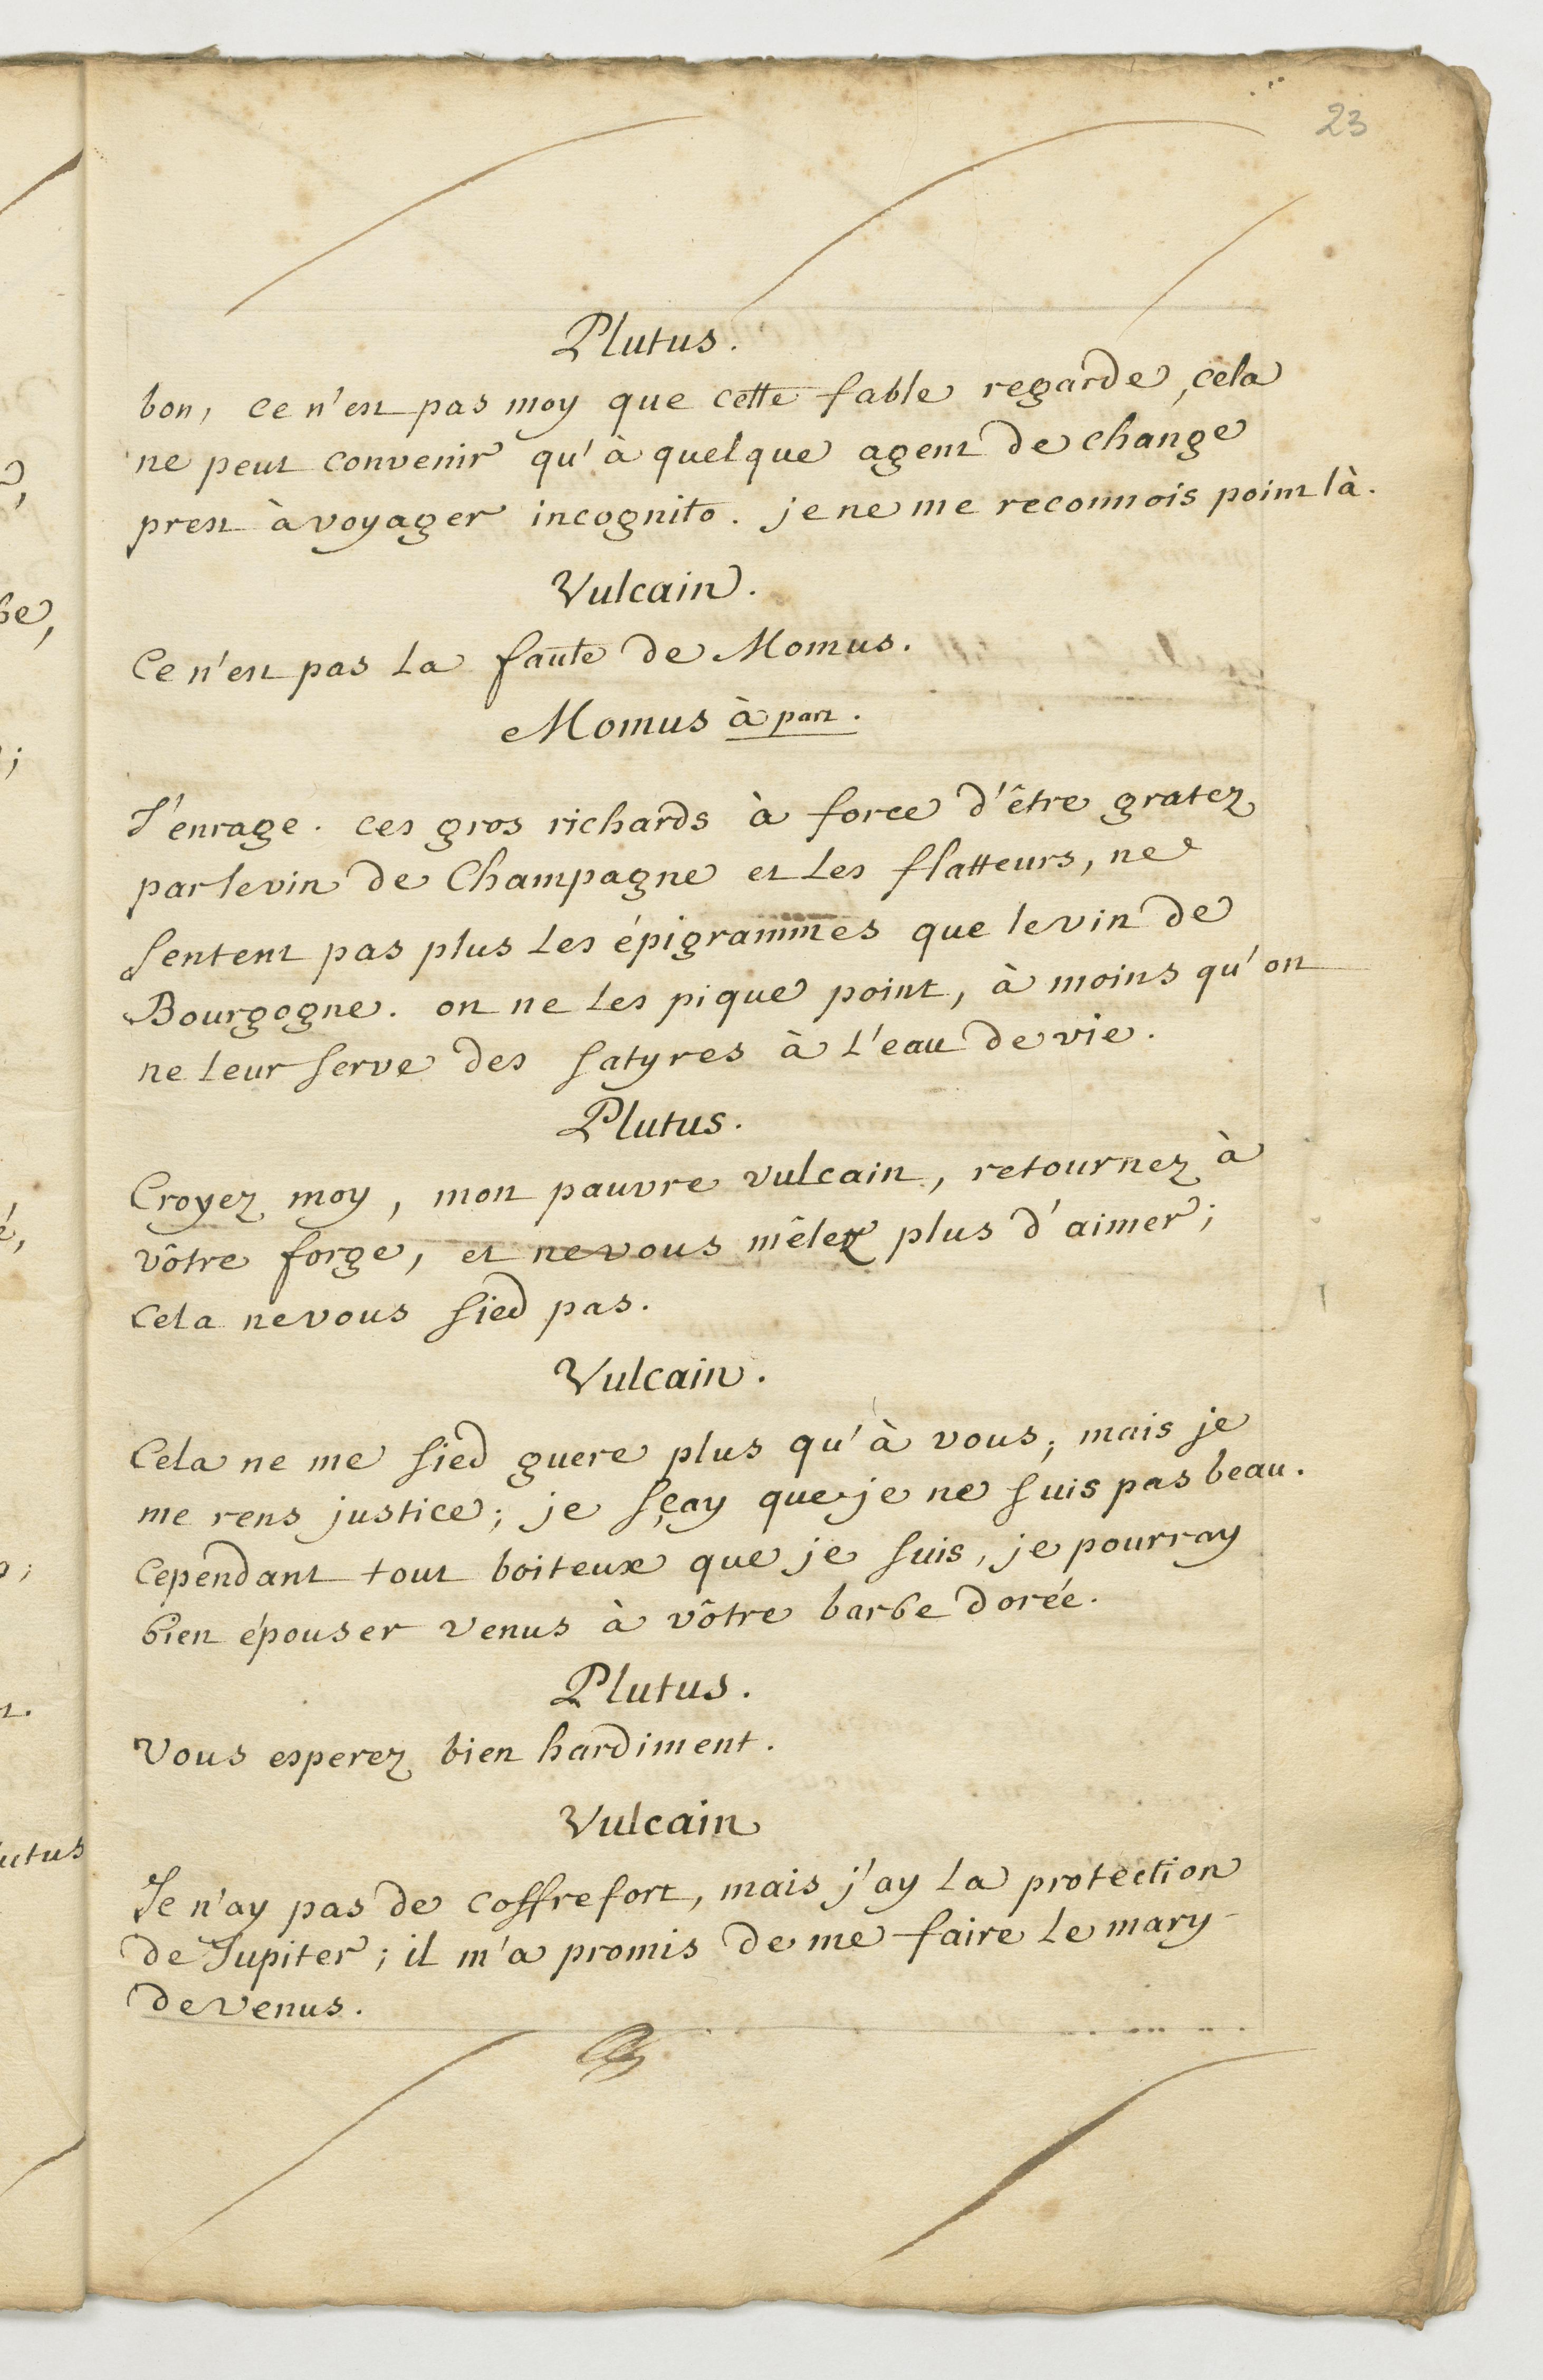 23
Plutus.
bon, ce n'est pas moy que cette fable regarde, cela
ne peut convenir qu'à quelque agent de change
prest à voyager incognito. je ne me reconnois point là.
Vulcain.
Ce n'est pas la faute de Momus.
Momus à part.
J'enrage. ces gros richards à force d'être gratez
par le vin de Champagne et les flatteurs, ne
sentent pas plus les épigrammes que le vin de
Bourgogne. on ne les pique point, à moins qu'on
ne leur serve des satyres à l'eau de vie.
Plutus.
Croyez moy, mon pauvre vulcain, retournez à
vôtre forge, et ne vous mêlez plus d'aimer;
cela ne vous sied pas.
Vulcain.
Cela ne me sied guere plus qu'à vous; mais je
me rens justice; je sçay que je ne suis pas beau.
cependant tout boiteux que je suis, je pourray
bien épouser venus à vôtre barbe dorée.
Plutus.
Vous esperez bien hardiment.
Vulcain
Je n'ay pas de coffre fort, mais j'ay la protection
de Jupiter; il m'a promis de me faire le mary
de venus.